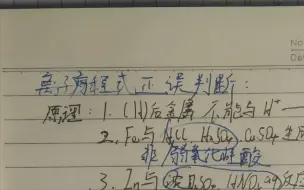 No
Da
离子方程式正误判断:
原理: 1. (H)后金属 不能与 H⁺一
2. Fe与HCl、H₂SO₄、CuSO₄
非/弱氧化性酸
3. Zn与浓H₂SO₄、HNO₃